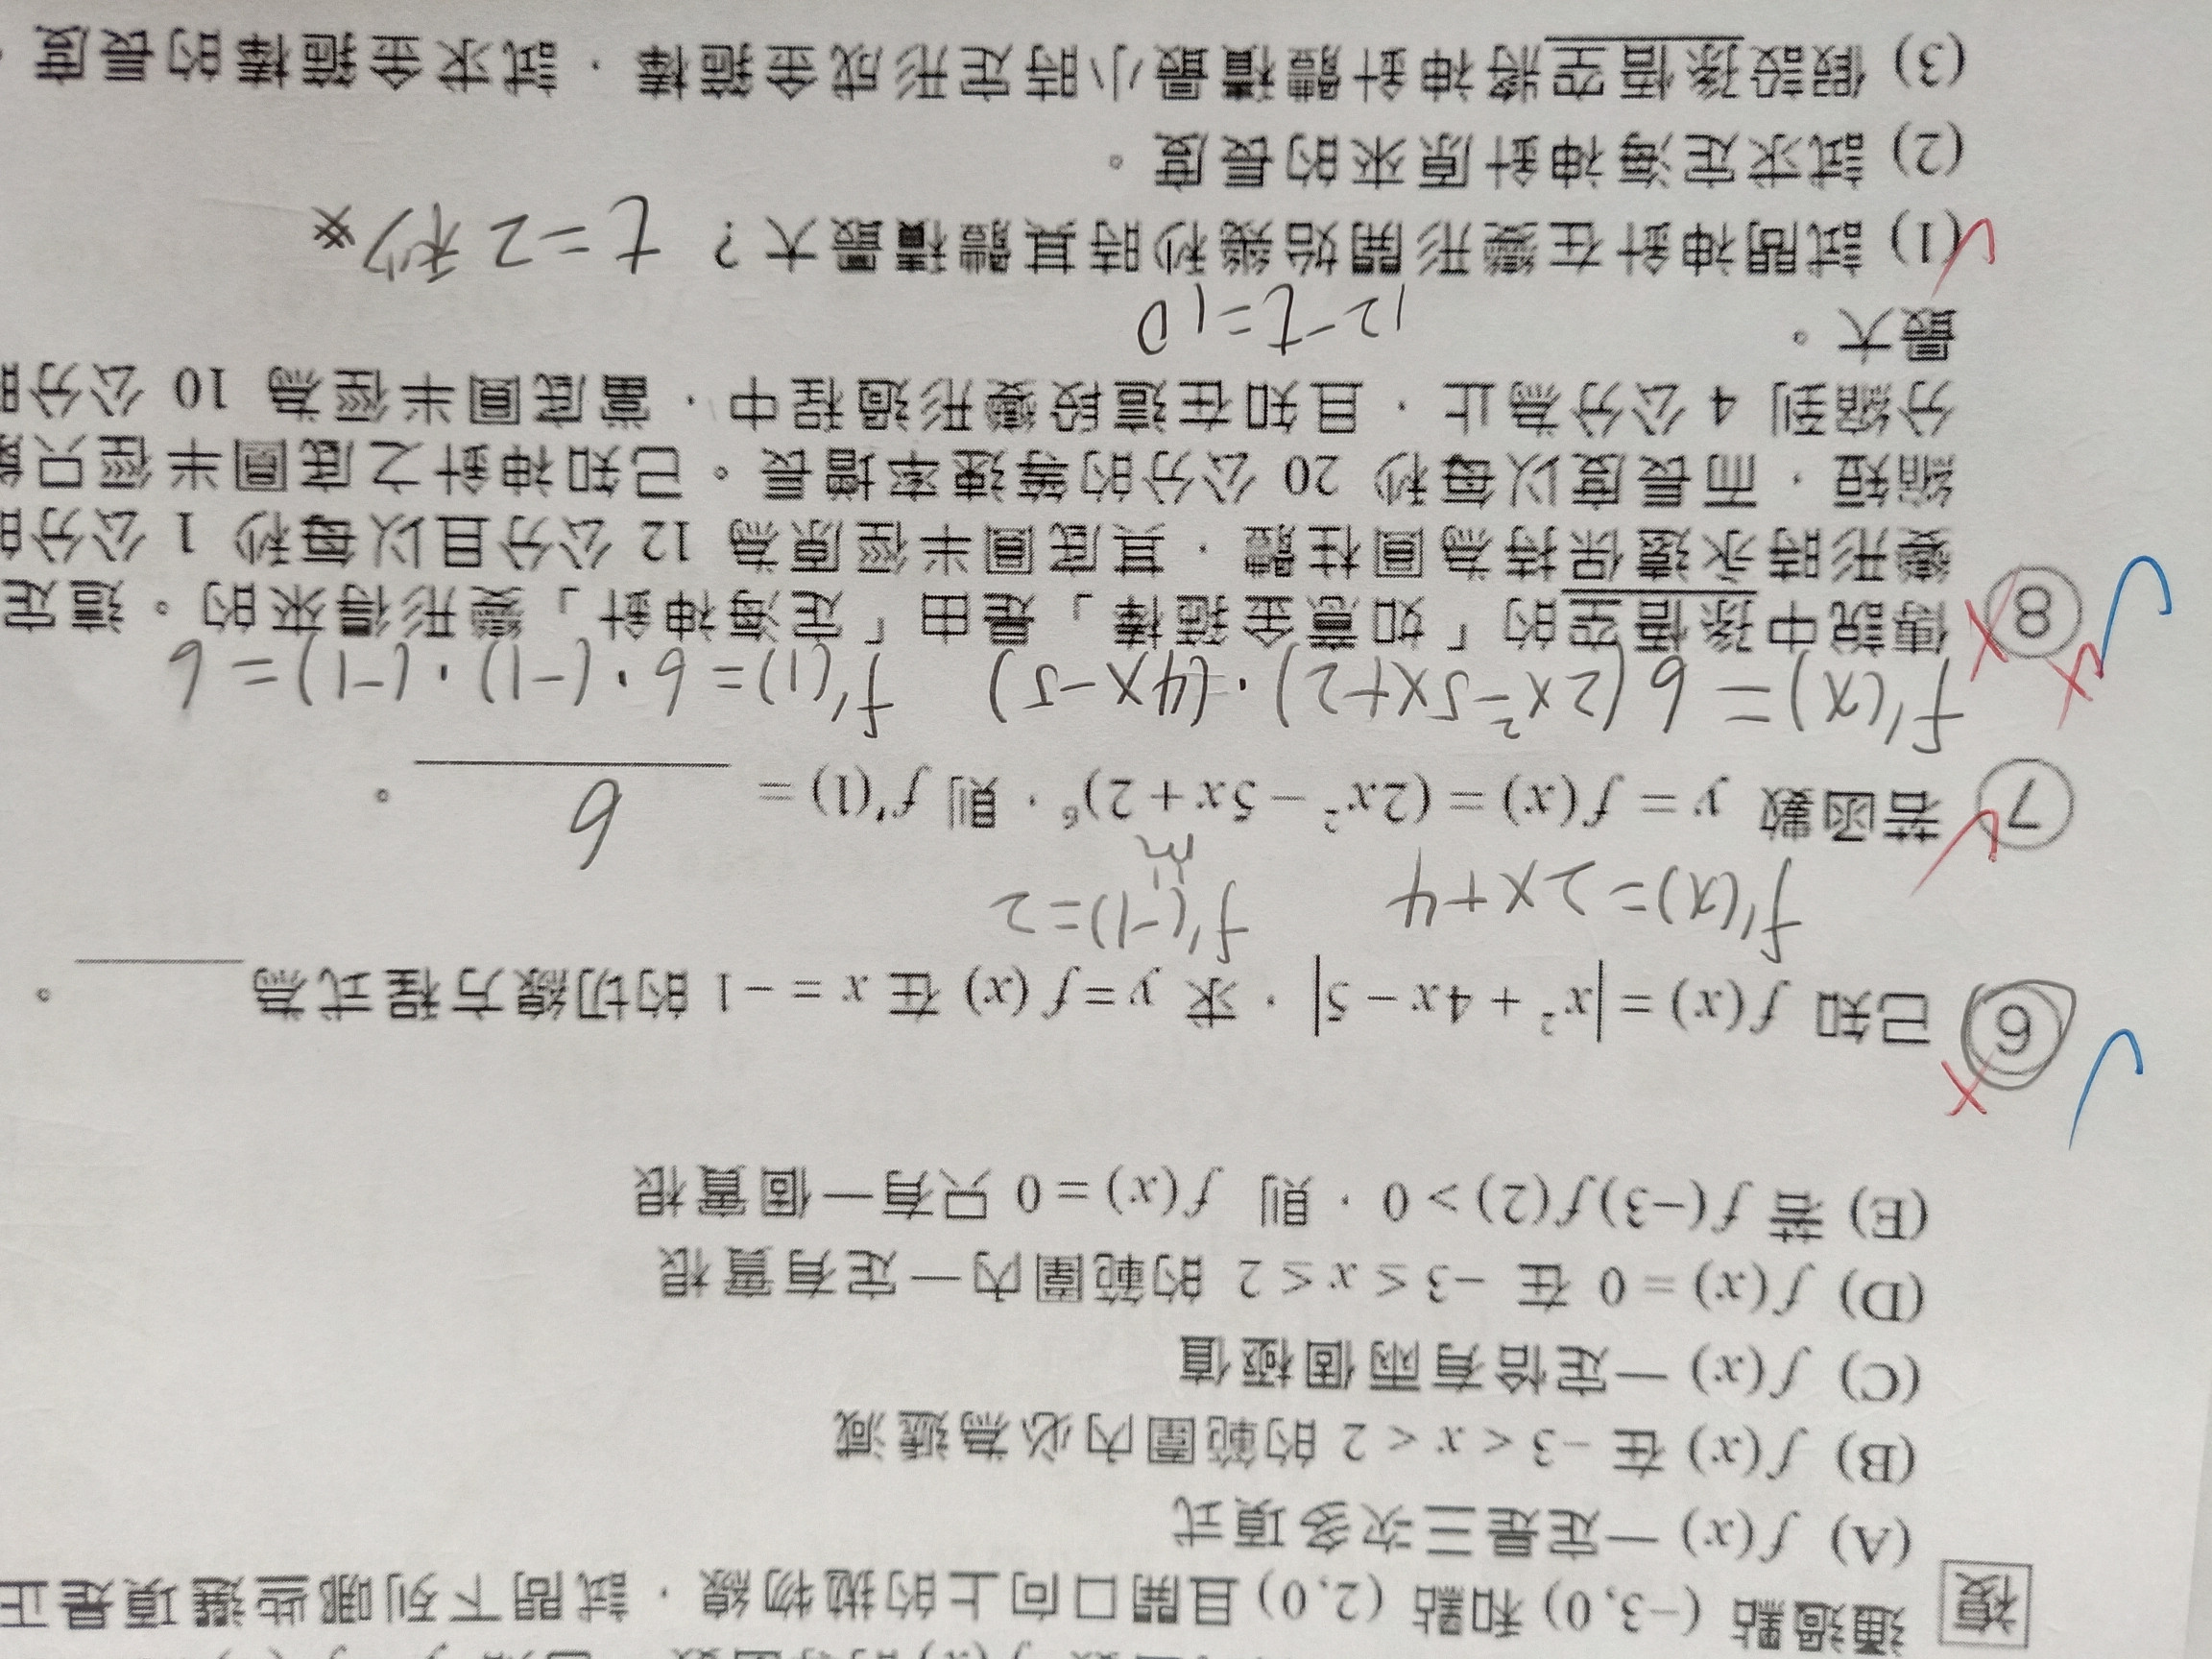 通過點 (−3, 0) 和點 (2, 0) 且開口向上的拋物線，試問下列哪些選項是正
複
(A) f(x) 一定是三次多項式
(B) f(x) 在 −3 < x < 2 的範圍內必為遞減
(C) f(x) 一定恰有兩個極值
(D) f(x) = 0 在 −3 ≤ x ≤ 2 的範圍內一定有實根
(E) 若 f(−3)f(2) > 0，則 f(x) = 0 只有一個實根
6 已知 f(x) = |x² + 4x − 5|，求 y = f(x) 在 x = −1 的切線方程式為________。
f'(x)=2x+4 f'(-1)=2
m
7 若函數 y = f(x) = (2x² − 5x + 2)⁶，則 f'(1) = 6 。
f'(x) = 6(2x²-5x+2)·(4x-5) f'(1)=6·(-1)·(-1)=6
8 傳說中孫悟空的「如意金箍棒」是由「定海神針」變形得來的。這定
變形時永遠保持為圓柱體，其底圓半徑原為 12 公分且以每秒 1 公分的
縮短，而長度以每秒 20 公分的等速率增長。已知神針之底圓半徑只能
分縮到 4 公分為止，且知在這段變形過程中，當底圓半徑為 10 公分時
最大。
12-t=10
(1) 試問神針在變形開始幾秒時其體積最大？ t=2秒
(2) 試求定海神針原來的長度。
(3) 假設孫悟空將神針體積最小時定形成金箍棒，試求金箍棒的長度。